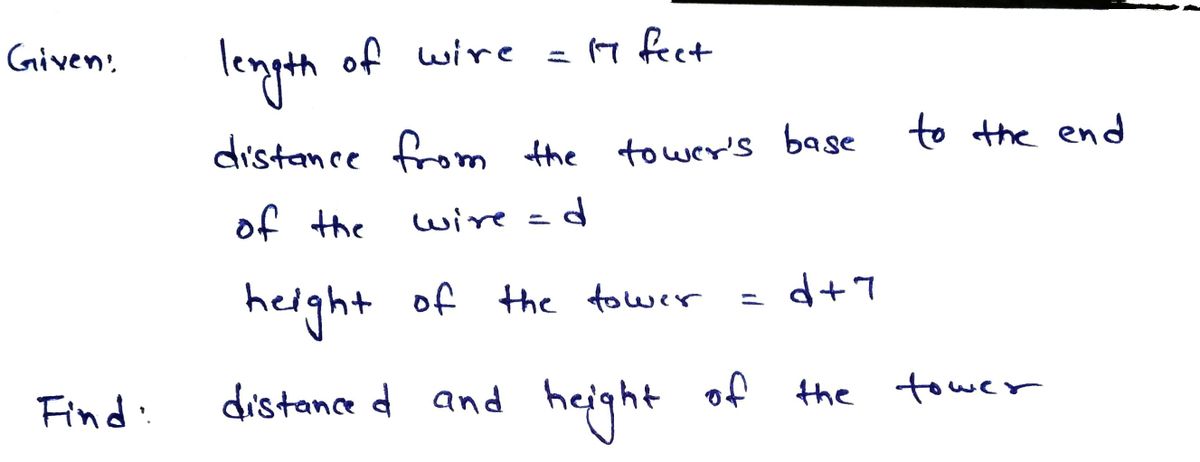 Given: length of wire = 17 feet
distance from the tower's base to the end
of the wire = d
height of the tower = d+7
Find: distance d and height of the tower